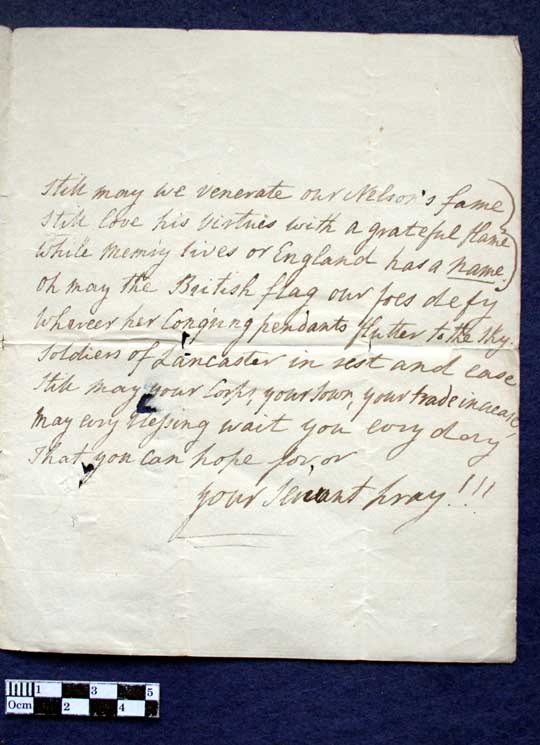 Still may we venerate our Nelson's fame
Still love his Virtues with a grateful flame
While Memry lives or England has a name.
Oh may the British flag our foes defy
Whereer her Conq'ring pendants flutter to the sky.
Soldiers of Lancaster in rest and ease
Still may your Corps, your town, your trade increase,
May evry blessing wait you evry day
That you can hope for or
your Servant pray!!!
0cm 1 2 3 4 5